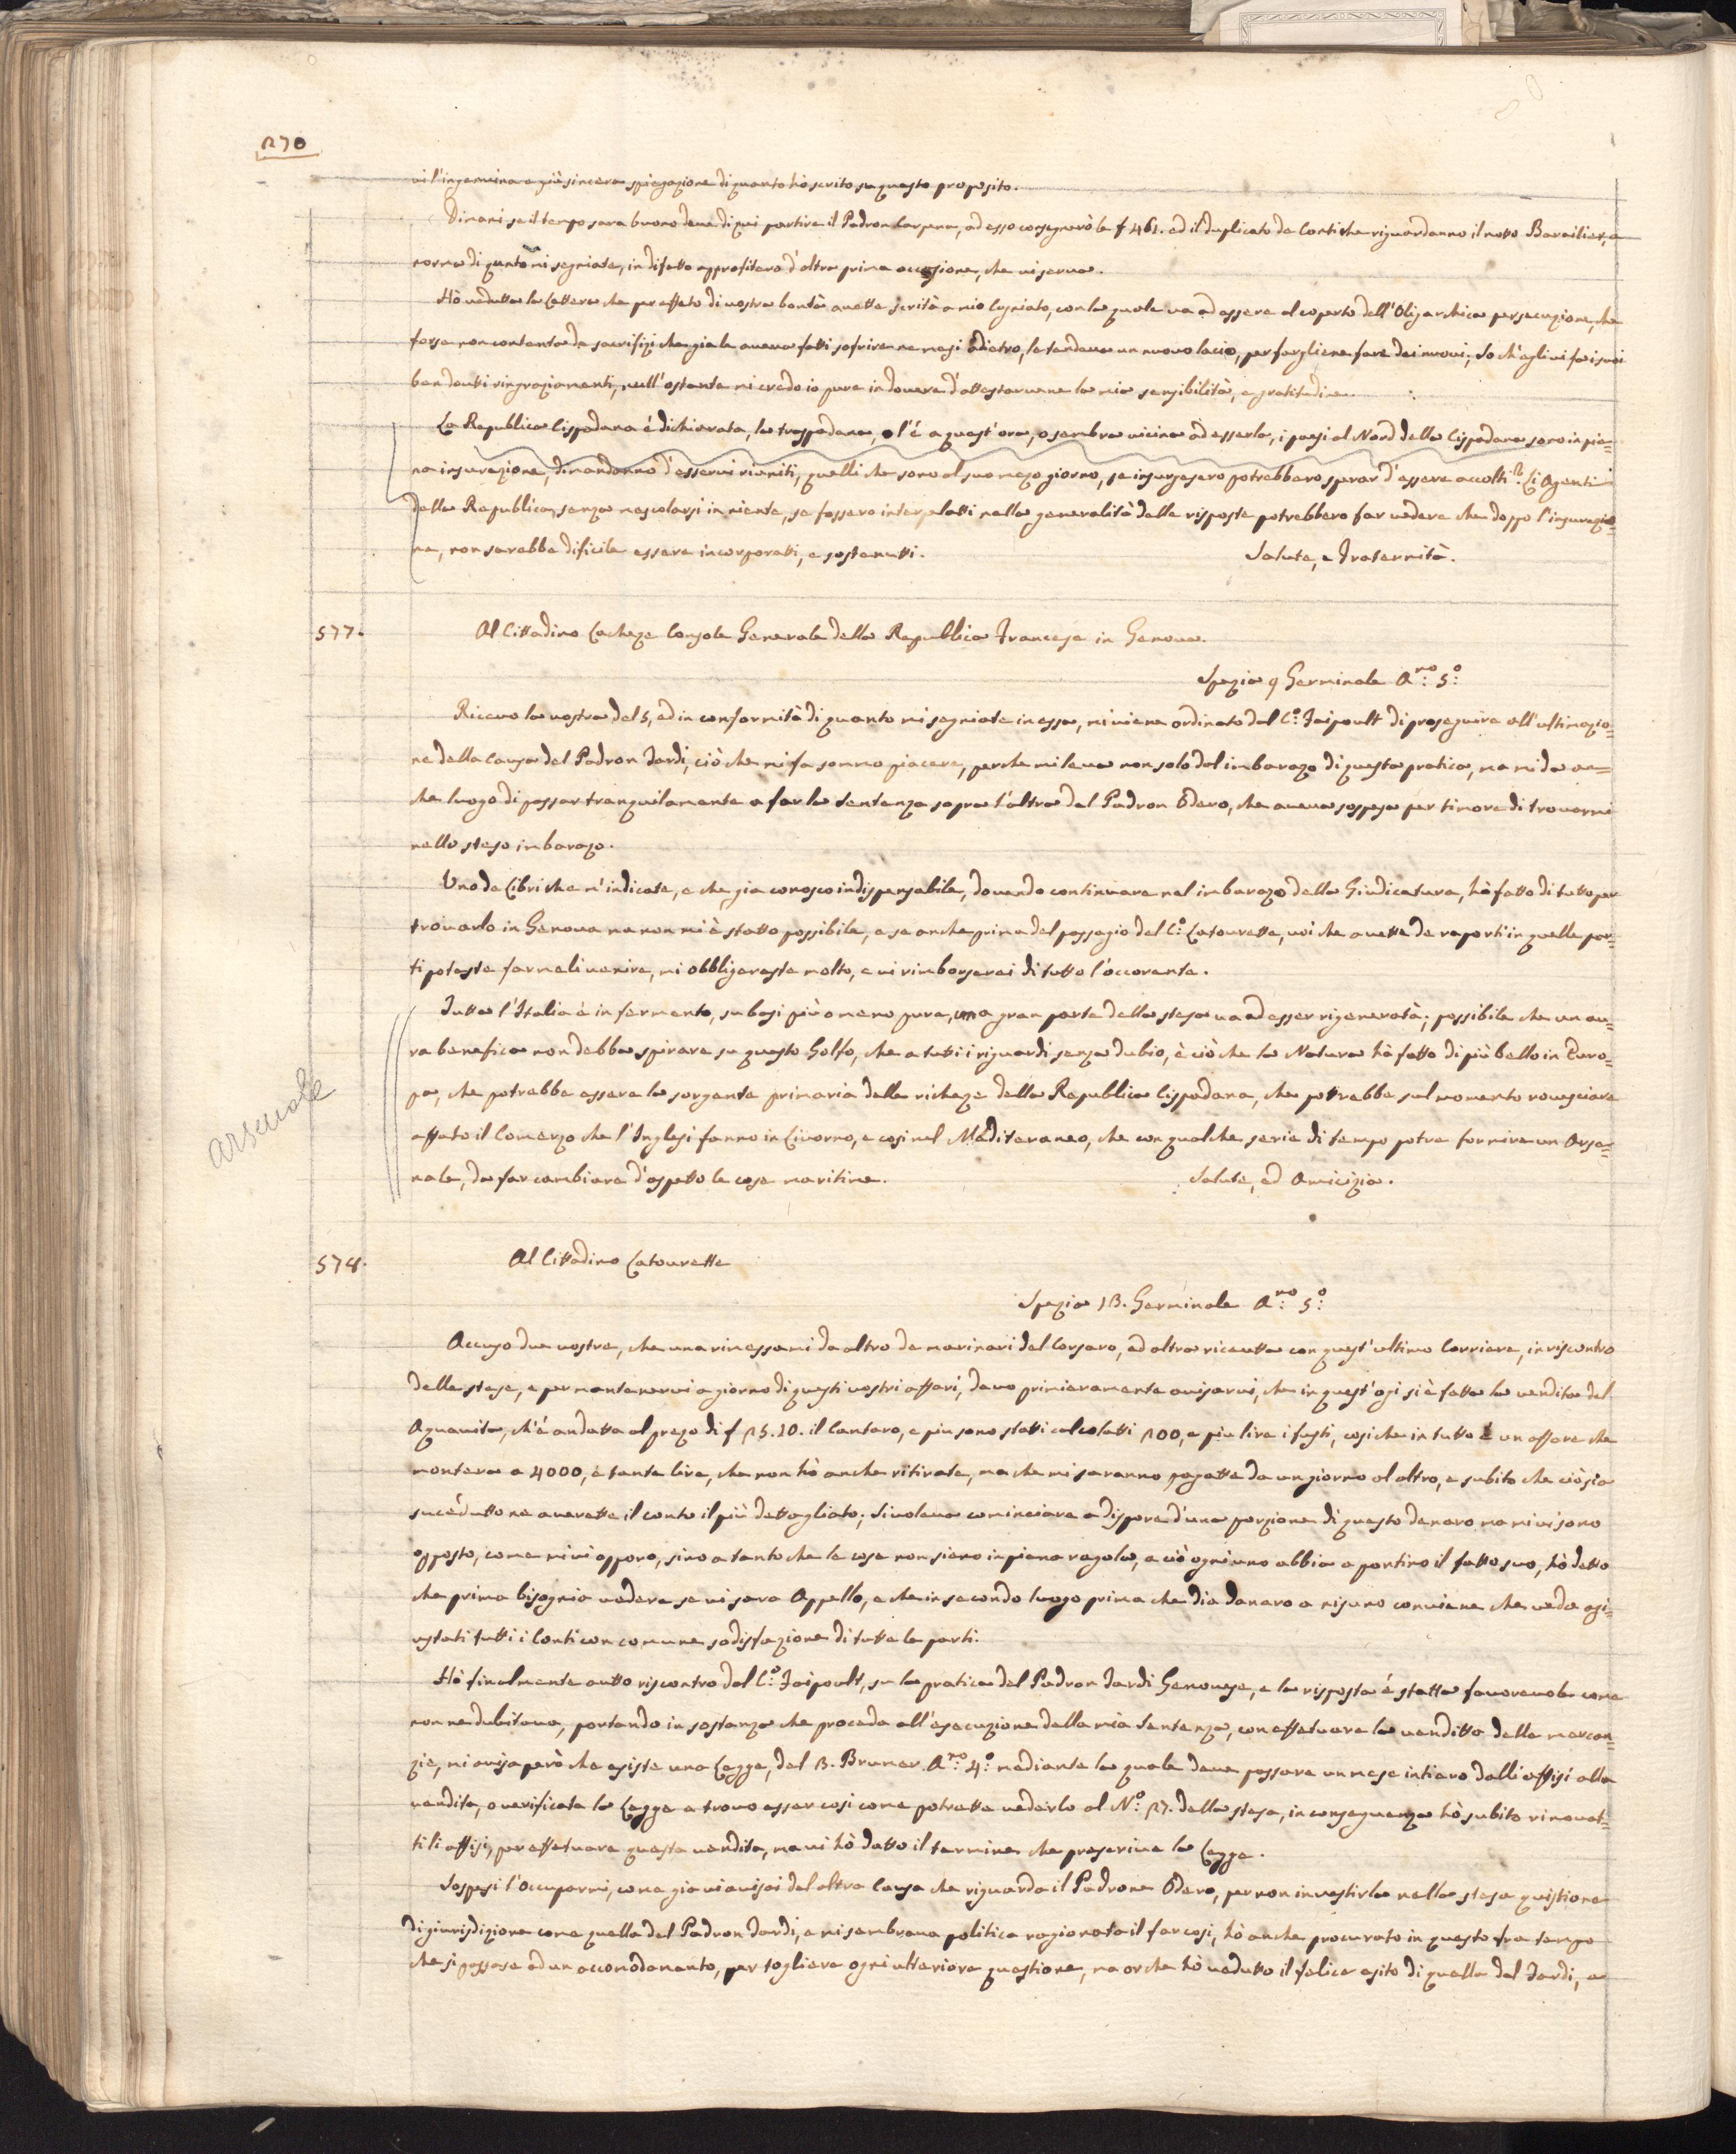 270
vi l'ingenuina e più sincera spiegazione di quanto hò scrito su questo proposito.
Dimani se il tempo sara buono deve di qui partire il Padron Carpena, ad esso consegnerò le f 461. ed il duplicato de Conti che riguardanno il notto Baralier, a
norma di quanto mi segniate, in difatto approfitero d'altra prima occasione, che mi serva.
Hò veduta la Lettera che per effeto di vostra bontà avette scrità a mio Cogniato, con la quale va ad essere al coperto dell'Oligarchica persecuzione, che
forse non contenta de sacrifizi che gia le aveva fatti sofrire ne mesi adietro, le tendeva un nuovo lacio, per fargliene fare dei nuovi; So ch'egli vi fa i suoi
ben dovuti ringraziamenti, null'ostante mi credo io pure in dovere d'attestarvene la mia sensibilità, e gratitudine.
La Republica Cispadana è dichiarata, la traspadana, o l'é a quest'ora, o sembra vicina ad esserla, i paesi al Nord della Cispadana sono in pie=
na insurezione, dimandanno d'esservi riuniti, quelli che sono al suo mezo giorno, se insurgesero potrebbero sperar d'essere accolti? Li Agenti
della Republica, senza mescolarsi in niente, se fossero interpelatti nella generalità delle risposte potrebbero far vedere che doppo l'insurezio=
ne, non sarebbe dificile essere incorporatti, e sostenutti. Salute, e Fraternità.
577. Al Cittadino Lacheze Console Generale della Republica Francese in Genova.
Spezia 9 Germinale Ano: 5o:
Ricevo la vostra del 5, ed in conformità di quanto mi segniate in essa, mi viene ordinato dal Co: Faipoult di proseguire all'ultimazio=
ne della Causa del Padron Tardi, ciò che mi fa sommo piacere, perche mi leva non solo dal imbarazo di questa pratica, ma mi da an=
che luogo di passar tranquilamente a far la Sentenza sopra l'altra del Padron Odero, che aveva sospesa per timore di trovarmi
nello steso imbarazo.
Uno de Libri che m'indicate, e che gia conosco indispensabile, dovendo continuare nel imbarazo della Giudicatura, hò fatto di tutto per
trovarlo in Genova ma non mi è statto possibile, e se anche prima del passagio del Co: Latourette, voi che avette de raporti in quelle par=
ti poteste farmeli venire, mi obbligareste molto, e vi rimborserei di tutto l'occorente.
Tutta l'Italia è in fermento, su basi più o meno pure, una gran parte della stesa va ad esser rigenerata; possibile che un au=
ra benefica non debba spirare su questo Golfo, che a tutti i riguardi senza dubio, è ciò che la Natura hà fatto di più bello in Euro=
pa, che potrebbe essere la sorgente primaria delle richeze della Republica Cispadana, che potrebbe sul momento rovesciare
affato il Comerzo che l'Inglesi fanno in Livorno, e cosi nel Mediteraneo, che con qualche serie di tempo potra fornire un Arse=
nale, da far cambiare d'aspetto le cose maritime. Salute, ed Amicizia.
arsenale
578. Al Cittadino Latourette
Spezia 13. Germinale Ano: 5o:
Accuso due vostre, che una rimessami da altro de marinari del Corsaro, ed altra riceutta con quest'ultimo Corriere, in riscontro
delle stese, e per mantenervi a giorno di questi vostri affari, devo primieramente avisarvi, che in quest'ogi si è fatta la vendita del
Aquavita, ch'é andatta al prezo di f 25.10. il Cantaro, e piu sono statti calcolatti 200, e piu lire i fusti, cosi che in tutto è un affare che
montera a 4000, e tante lire, che non hò anche ritirate, ma che mi saranno pagatte da un giorno al altro, e subito che ciò sia
sucedutto ne averette il conto il più dettagliato; Si voleva cominciare a dispore d'una porzione di questo denaro ma mi vi sono
opposto, come mi vi oppono, sino a tanto che le cose non siano in piena regola, a ciò ogniuno abbia a pontino il fatto suo, hò detto
che prima bisognia vedere se vi sara Appello, e che in secondo luogo prima che dia danaro a nisuno conviene che veda agi=
ustati tutti i Conti con comune sodisfazione di tutte le parti.
Hò finalmente autto riscontro dal Co: Faipoult, su la pratica del Padron Tardi Genovese, e la risposta è statta favorevole come
non ne dubitava, portando in sostanza che proceda all'esecuzione della mia Sentenza, con effetuare la venditta delle mercan=
zie, mi avisa però che esiste una Legge, del 3. Brumer Ano: 4o: mediante la quale deve passare un mese intiero dalli affisi alla
vendita, o verificata la Legge e trovo esser cosi come potrette vederla al No: 27. della stesa, in conseguenza hò subito rinovat=
ti li affisi, per effetuare questa vendita, ma vi hò datto il termine che prescrive la Legge.
Sospesi l'occuparmi, come gia vi avisai del altra Causa che riguarda il Padrone Odero, per non investirla nella stesa quistione
di giurisdizione come quella del Padron Tardi, e mi sembrava politica ragionata il far cosi, hò anche procurato in questo fra tempo
che si passase ad un accomodamento, per togliere ogni ulteriore questione, ma or che hò vedutto il felice esito di quella del Tardi, e